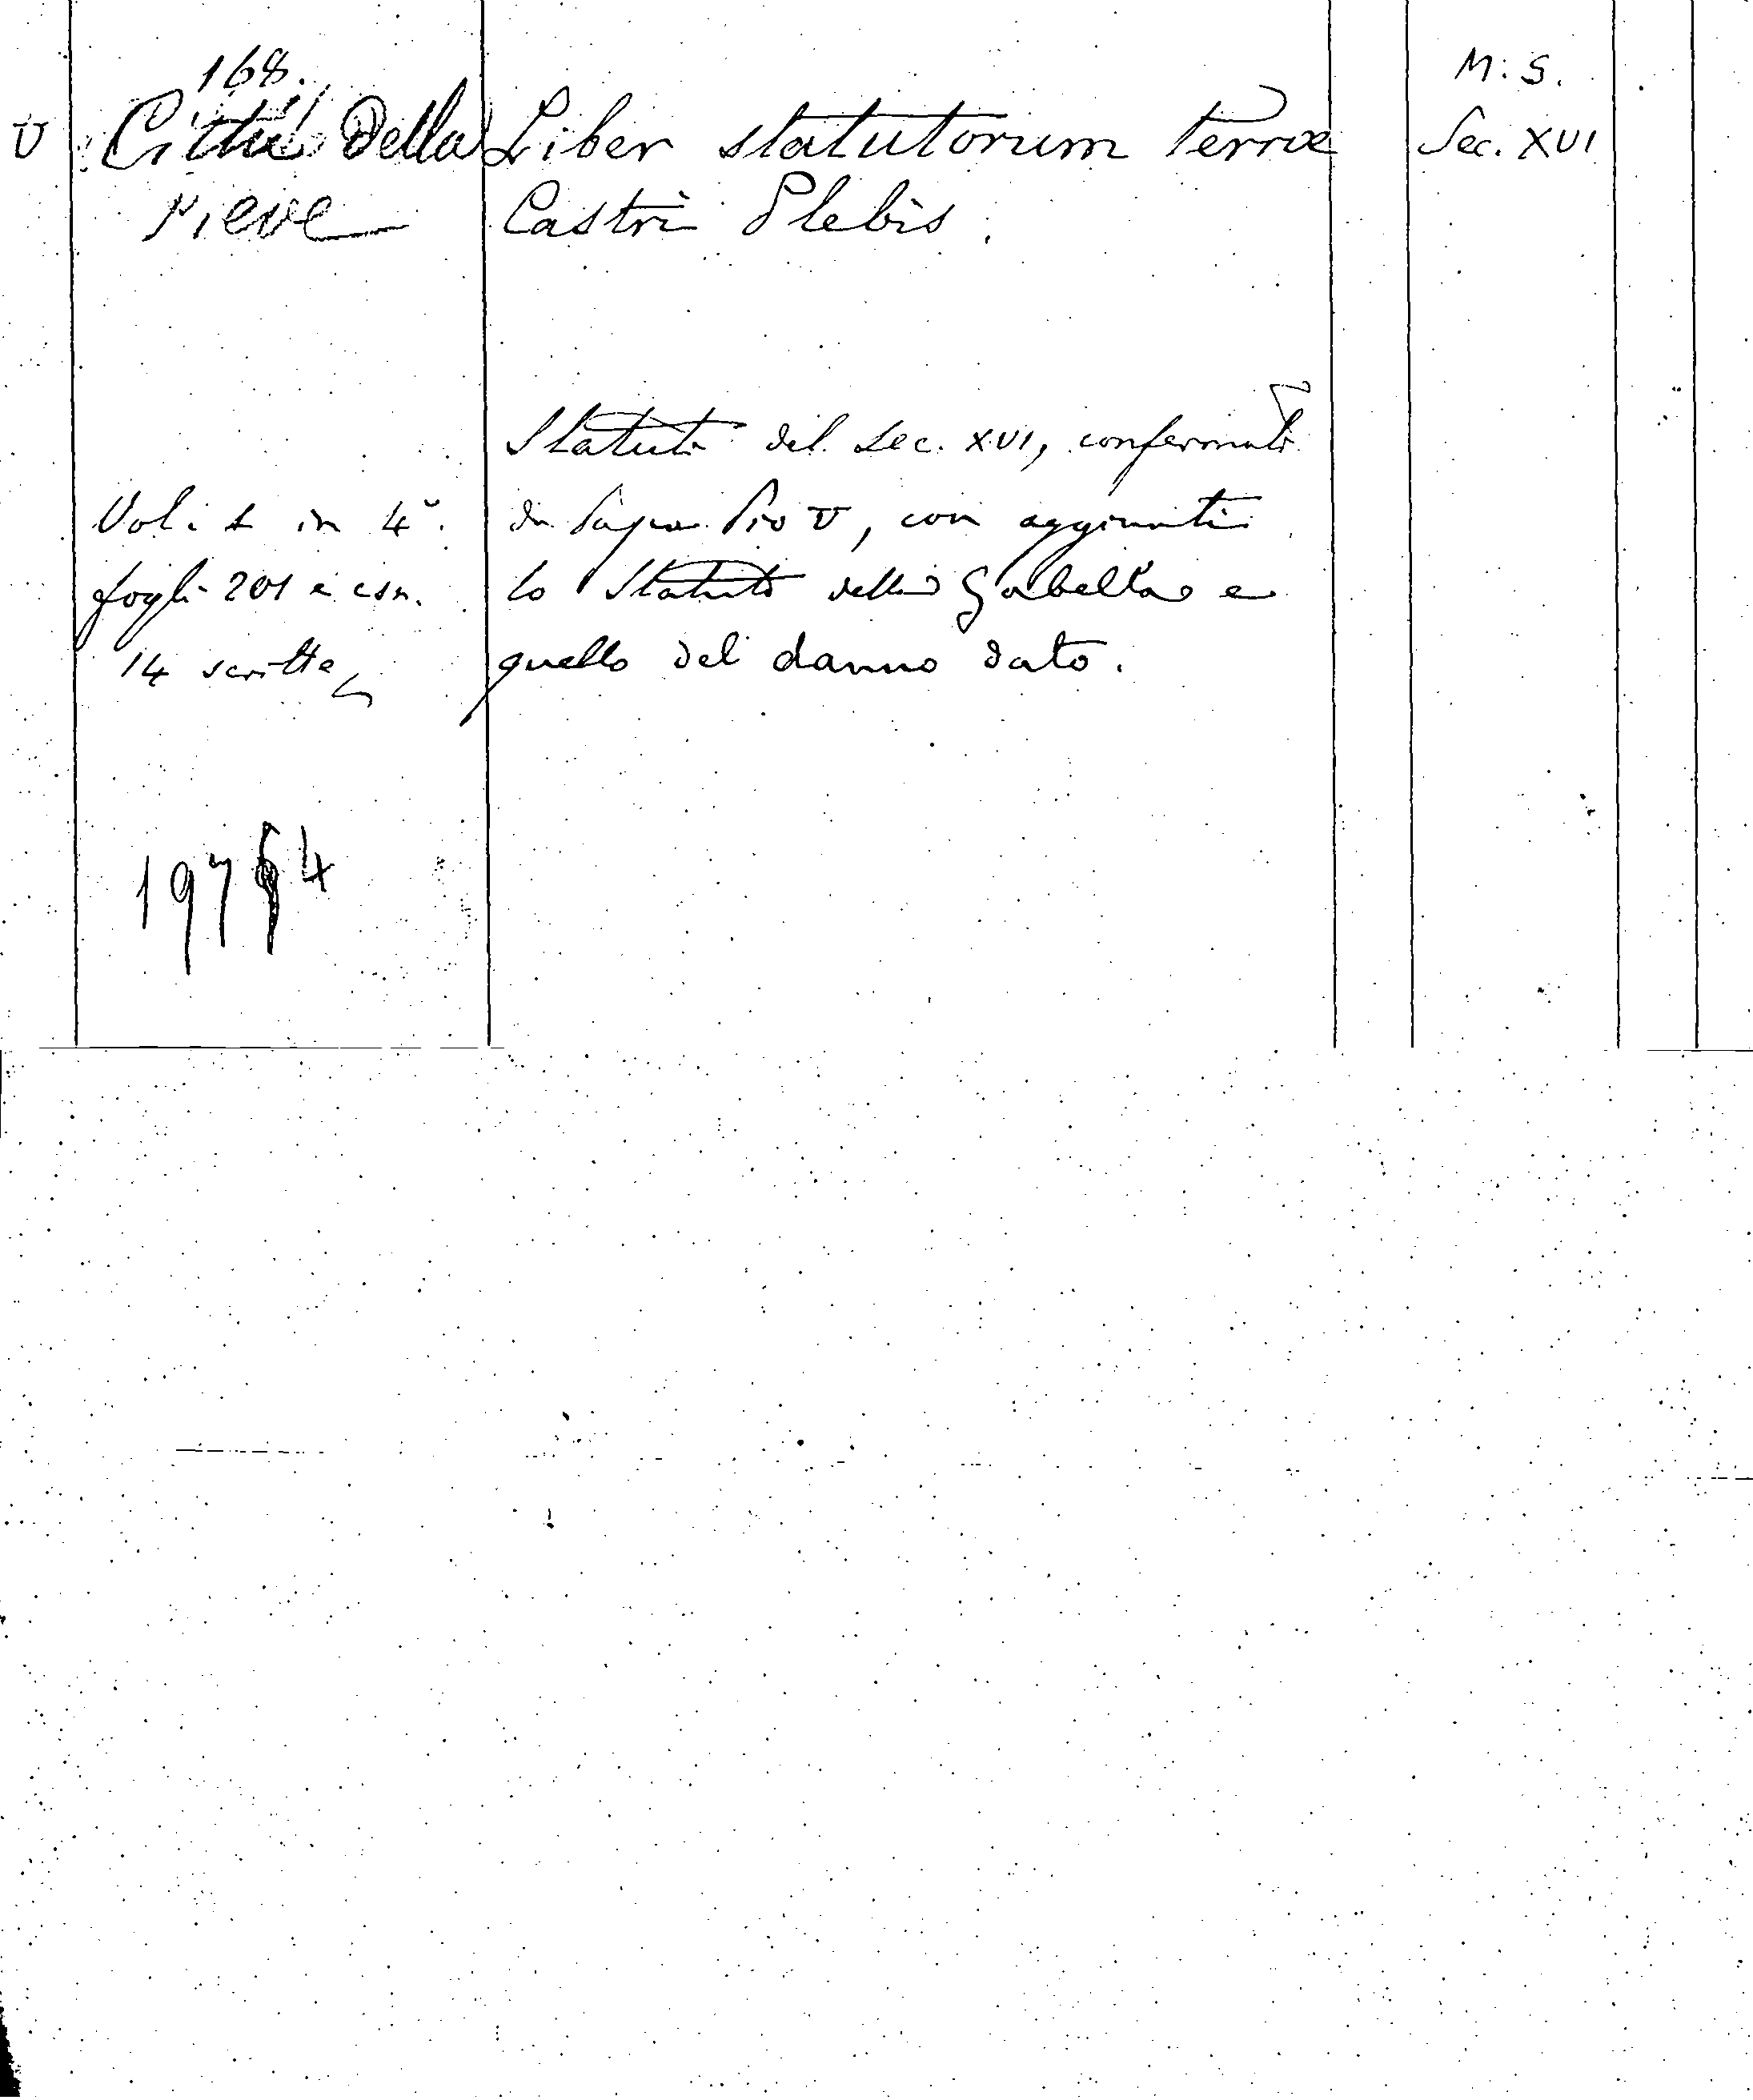 168.
V Città della Liber statutorum terræ M. S.
Pieve Castri Plebis. Sec. XVI
Statuti del sec. XVI, confermati
Vol. 1 in 4°. da Papa Pio V, con aggiunti
fogli 201 e con. lo Statuto delle Gabelle e
14 scritte quello del danno dato.
197 4